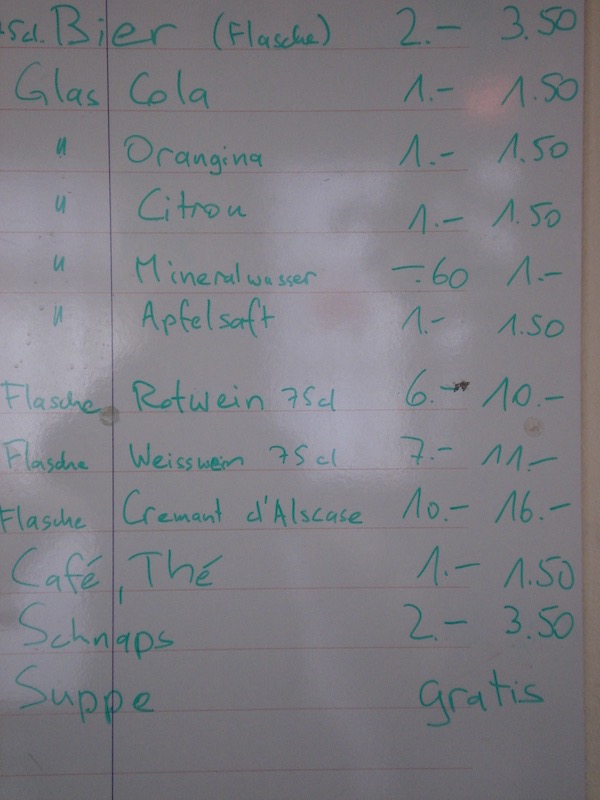 5dl. Bier (Flasche) 2.- 3.50
Glas Cola 1.- 1.50
" Orangina 1.- 1.50
" Citron 1.- 1.50
" Mineralwasser -.60 1.-
" Apfelsaft 1.- 1.50
Flasche Rotwein 75cl 6.- 10.-
Flasche Weisswein 75cl 7.- 11.-
Flasche Cremant d'Alscase 10.- 16.-
Café, Thé 1.- 1.50
Schnaps 2.- 3.50
Suppe gratis